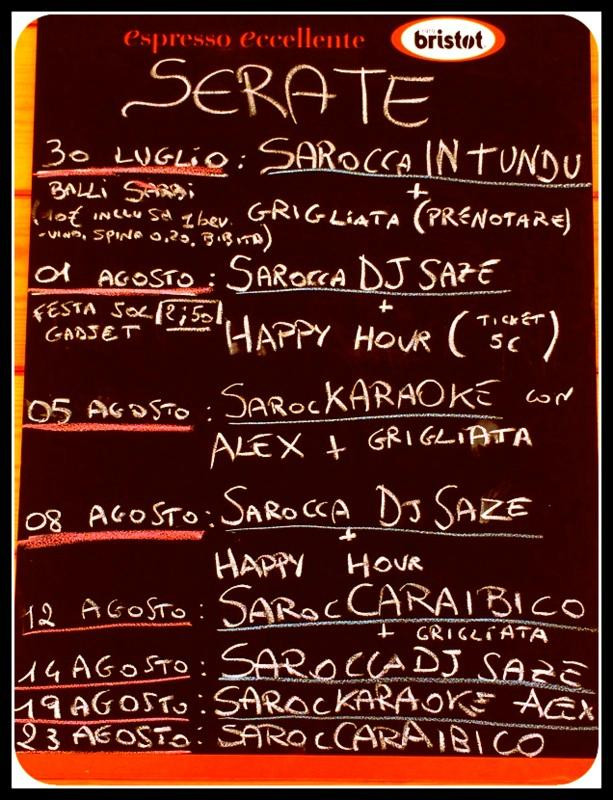 espresso eccellente bristot
SERATE
30 LUGLIO: SAROCCA IN TUNDU
BALLI SARDI +
(10€ INCLUSA 1 bev. GRIGLIATA (PRENOTARE)
-VINO, SPINA 0,20, BIBITA)
01 AGOSTO: SAROCCA DJ SAZE
FESTA SOL 2,50 +
GADJET HAPPY HOUR (TICKET
5€)
05 AGOSTO: SAROCKARAOKE CON
ALEX + GRIGLIATA
08 AGOSTO: SAROCCA DJ SAZE
+
HAPPY HOUR
12 AGOSTO: SAROCCARAIBICO
+ GRIGLIATA
14 AGOSTO: SAROCCA DJ SAZE
19 AGOSTO: SAROCKARAOKE ALEX
23 AGOSTO: SAROCCARAIBICO